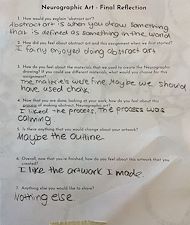 Neurographic Art - Final Reflection
1. How would you explain "abstract art"?
Abstract art is when you draw something
that is defined as something in the world
2. How did you feel about abstract art and this assignment when we first started?
I fairly enjoyed doing abstract art.
3. How do you feel about the materials that we used to create the Neurographic
drawing? If you could use different materials, what would you choose for this
assignment?
The materials were fine. Maybe we should
have used chalk
4. Now that you are done, looking at your work, how do you feel about the
process of making abstract, Neurographic art?
I liked the process. The process was
calming
5. Is there anything that you would change about your artwork?
Maybe the outline
6. Overall, now that you're finished, how do you feel about this artwork that you
created?
I like the artwork I made.
7. Anything else you would like to share?
Nothing else